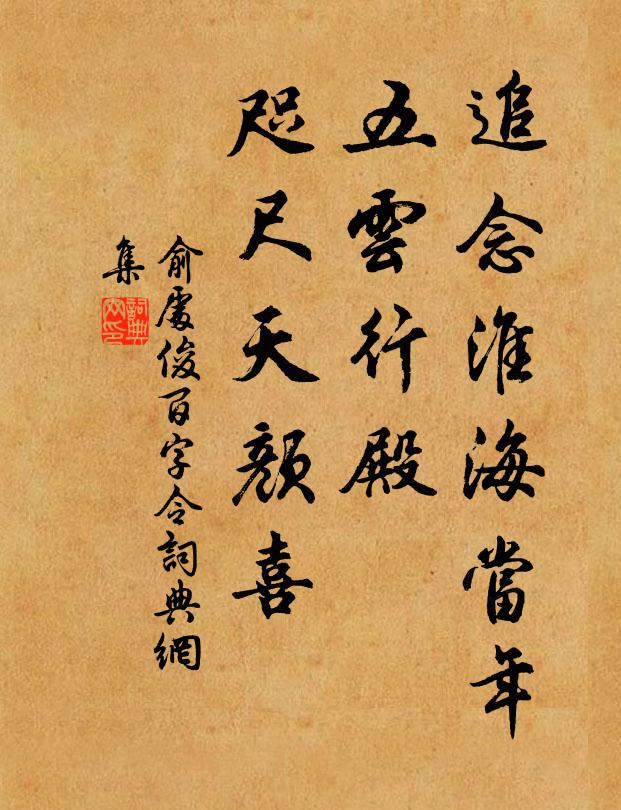 追念淮海當年
五雲行殿
咫尺天顏喜
俞處俊百字令詞典網
集
詞典
網印